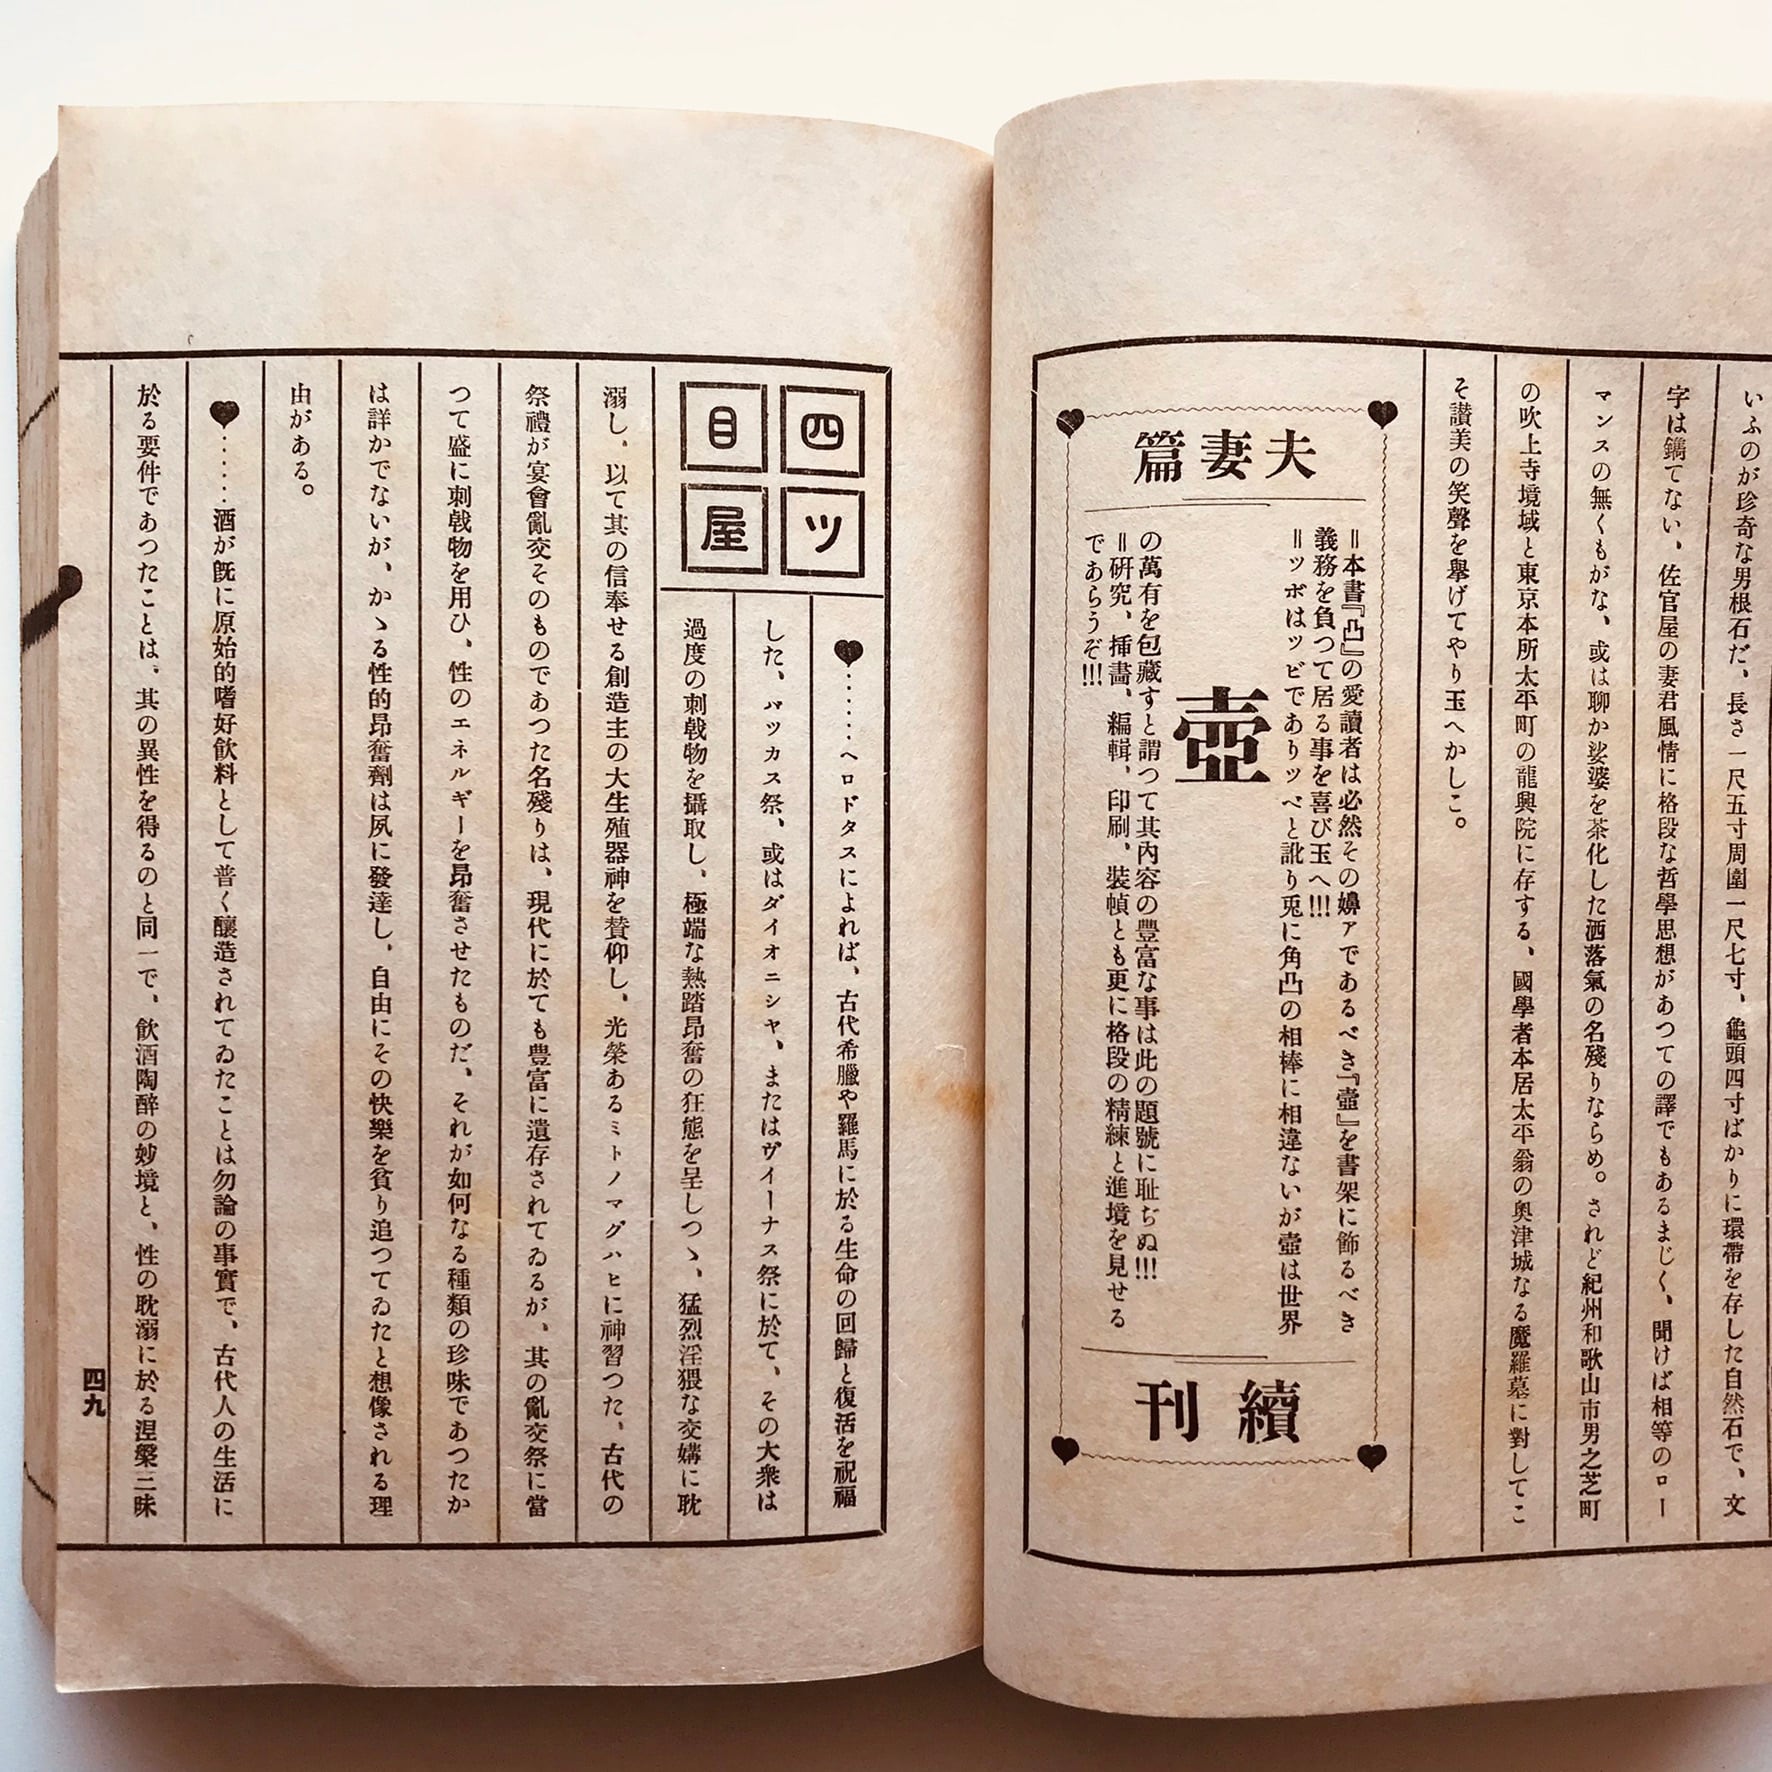 いふのが珍奇な男根石だ、長さ一尺五寸周圍一尺七寸、龜頭四寸ばかりに環帶を存した自然石で、文
字は鐫てない、佐官屋の妻君風情に格段な哲學思想があつての譯でもあるまじく、聞けば相等のロー
マンスの無くもがな、或は聊か娑婆を茶化した洒落氣の名殘りならめ。されど紀州和歌山市男之芝町
の吹上寺境域と東京本所太平町の龍興院に存する、國學者本居太平翁の奥津城なる魔羅墓に對してこ
そ讃美の笑聲を擧げてやり玉へかしこ。
夫妻篇
＝本書『凸』の愛讀者は必然その嬶ァであるべき『壺』を書架に飾るべき
義務を負つて居る事を喜び玉へ!!!
＝ツボはツビでありツベと訛り兎に角凸の相棒に相違ないが壺は世界
壺
の萬有を包藏すと謂つて其内容の豐富な事は此の題號に耻ぢぬ!!!
＝硏究、揷畵、編輯、印刷、裝幀とも更に格段の精練と進境を見せる
であらうぞ!!!
續刊
四ツ
目屋
♥……ヘロドタスによれば、古代希臘や羅馬に於る生命の回歸と復活を祝福
した、バッカス祭、或はダイオニシヤ、またはヴイーナス祭に於て、その大衆は
過度の刺戟物を攝取し、極端な熱踏昂奮の狂態を呈しつゝ、猛烈淫猥な交媾に耽
溺し、以て其の信奉せる創造主の大生殖器神を賛仰し、光榮あるミトノマグハヒに神習つた、古代の
祭禮が宴會亂交そのものであつた名殘りは、現代に於ても豐富に遺存されてゐるが、其の亂交祭に當
つて盛に刺戟物を用ひ、性のエネルギーを昂奮させたものだ、それが如何なる種類の珍味であつたか
は詳かでないが、かゝる性的昂奮劑は夙に發達し、自由にその快樂を貪り追つてゐたと想像される理
由がある。
♥……酒が旣に原始的嗜好飮料として普く釀造されてゐたことは勿論の事實で、古代人の生活に
於る要件であつたことは、其の異性を得るのと同一で、飮酒陶醉の妙境と、性の耽溺に於る涅槃三昧
四九